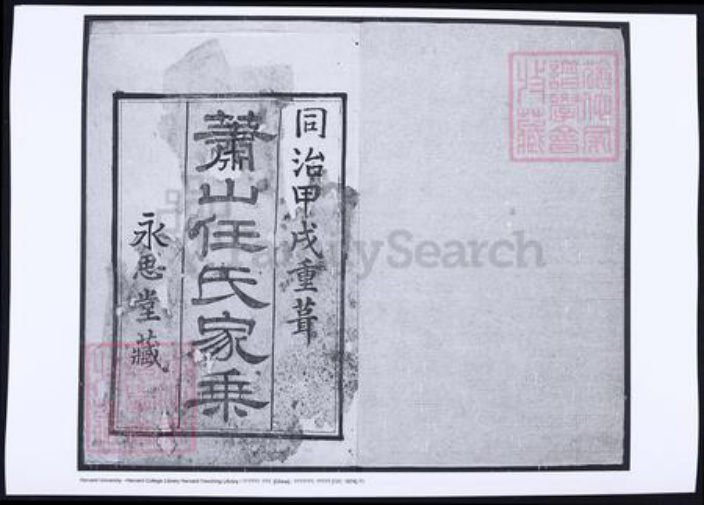 同治甲戌重葺
蕭山任氏家乘
永思堂藏
FamilySearch
Harvard University - Harvard College Library Harvard-Yenching Library